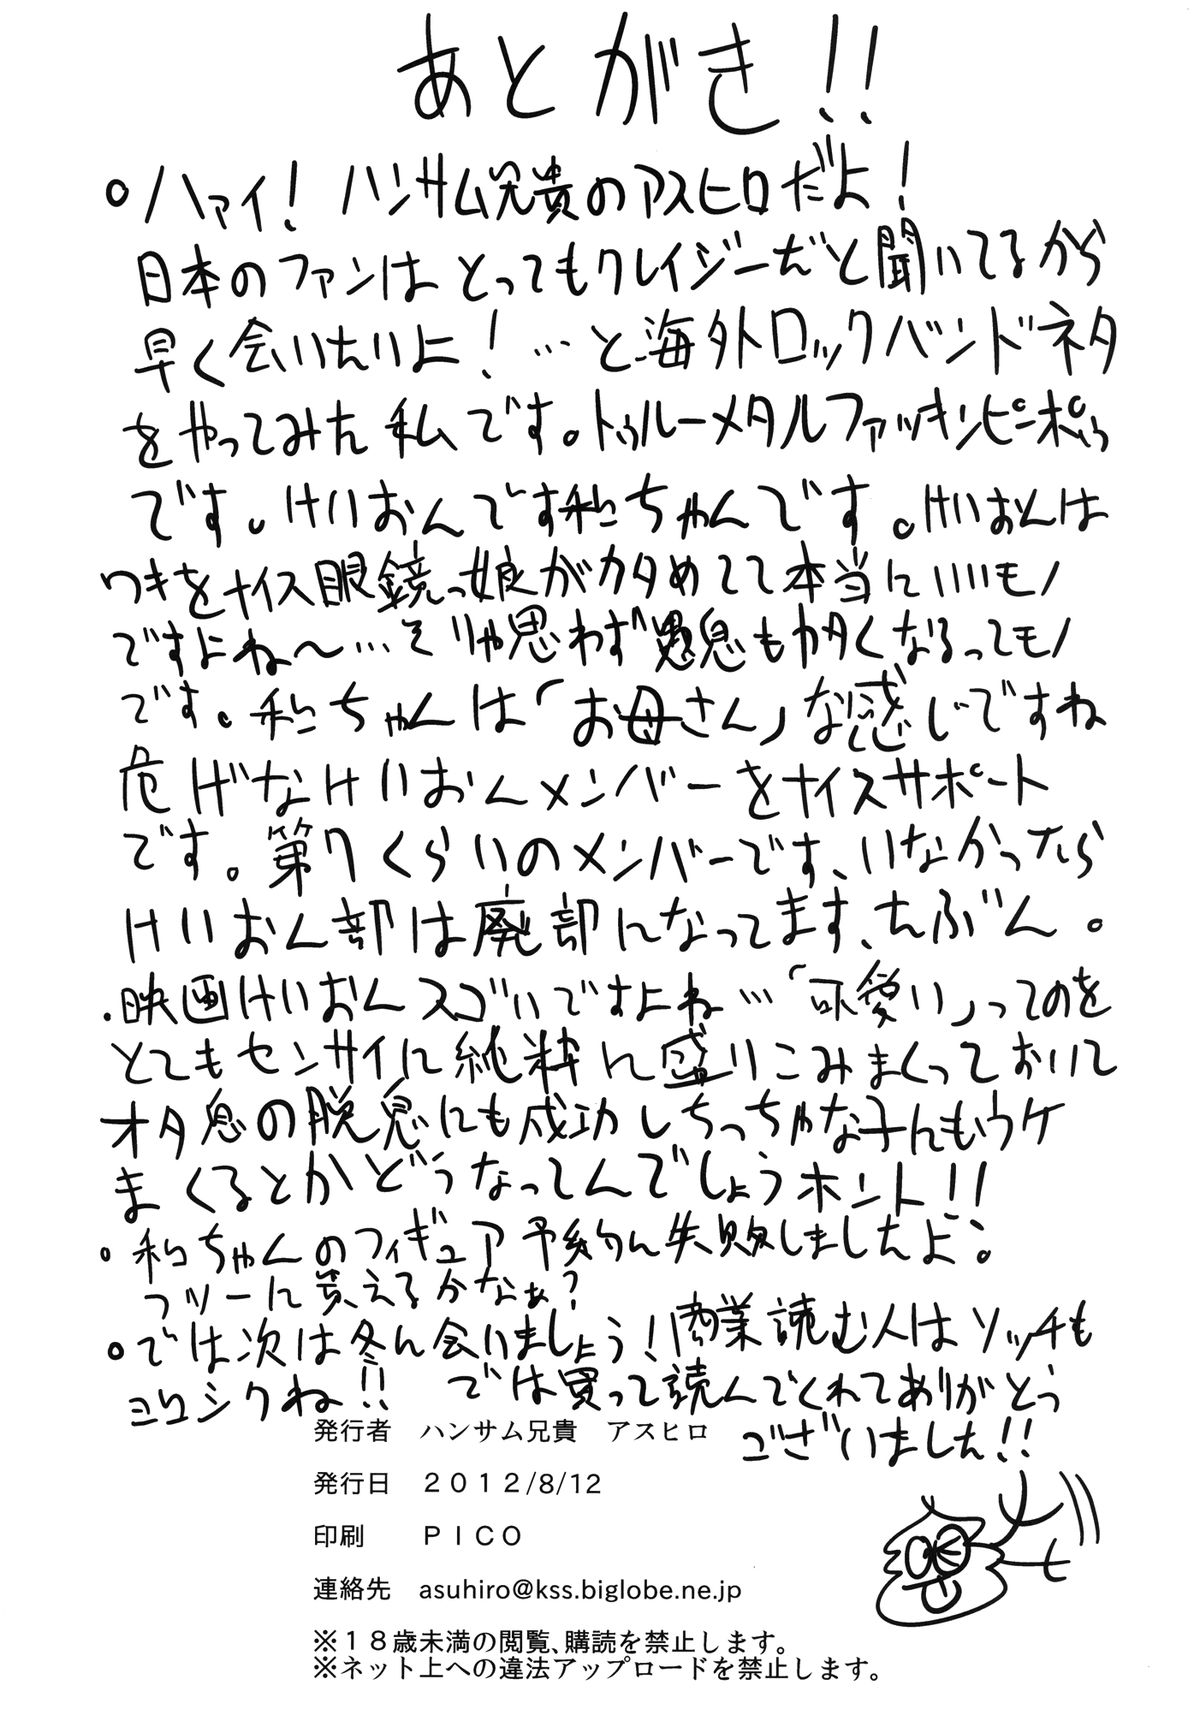 あとがき!!
ハァイ! ハンサム兄貴のアスヒロだよ!
日本のファンはとってもクレイジーだと聞いてるから
早く会いたいよ!…と海外ロックバンドネタ
をやってみた私です。トゥルーメタルファッキンピンポゥ
です。けいおんです和ちゃんです。けいおんは
ワキをナイス眼鏡っ娘がカタめてて本当にいいモノ
ですよね〜…そりゃ思わず愚息もカタくなるってモノ
です。和ちゃんは「お母さん」な感じですね
危げなけいおんメンバーをナイスサポート
です。第7くらいのメンバーです、いなかったら
けいおん部は廃部になってます、たぶん。
.映画けいおんスゴいですよね…「可愛い」ってのを
とてもセンサイに純粋に盛りこみまくっておいて
オタ息の脱息にも成功しちっちゃな子にもウケ
まくるとかどうなってんでしょうホント!!
和ちゃんのフィギュア予約に失敗しましたよ。
フツーに買えるかなぁ?
では次は冬に会いましょう!商業読む人はソッチも
ヨロシクね!! では買って読んでくれてありがとう
ございました!!
発行者 ハンサム兄貴 アスヒロ
発行日 2012/8/12
印刷 PICO
連絡先 asuhiro@kss.biglobe.ne.jp
※18歳未満の閲覧、購読を禁止します。
※ネット上への違法アップロードを禁止します。